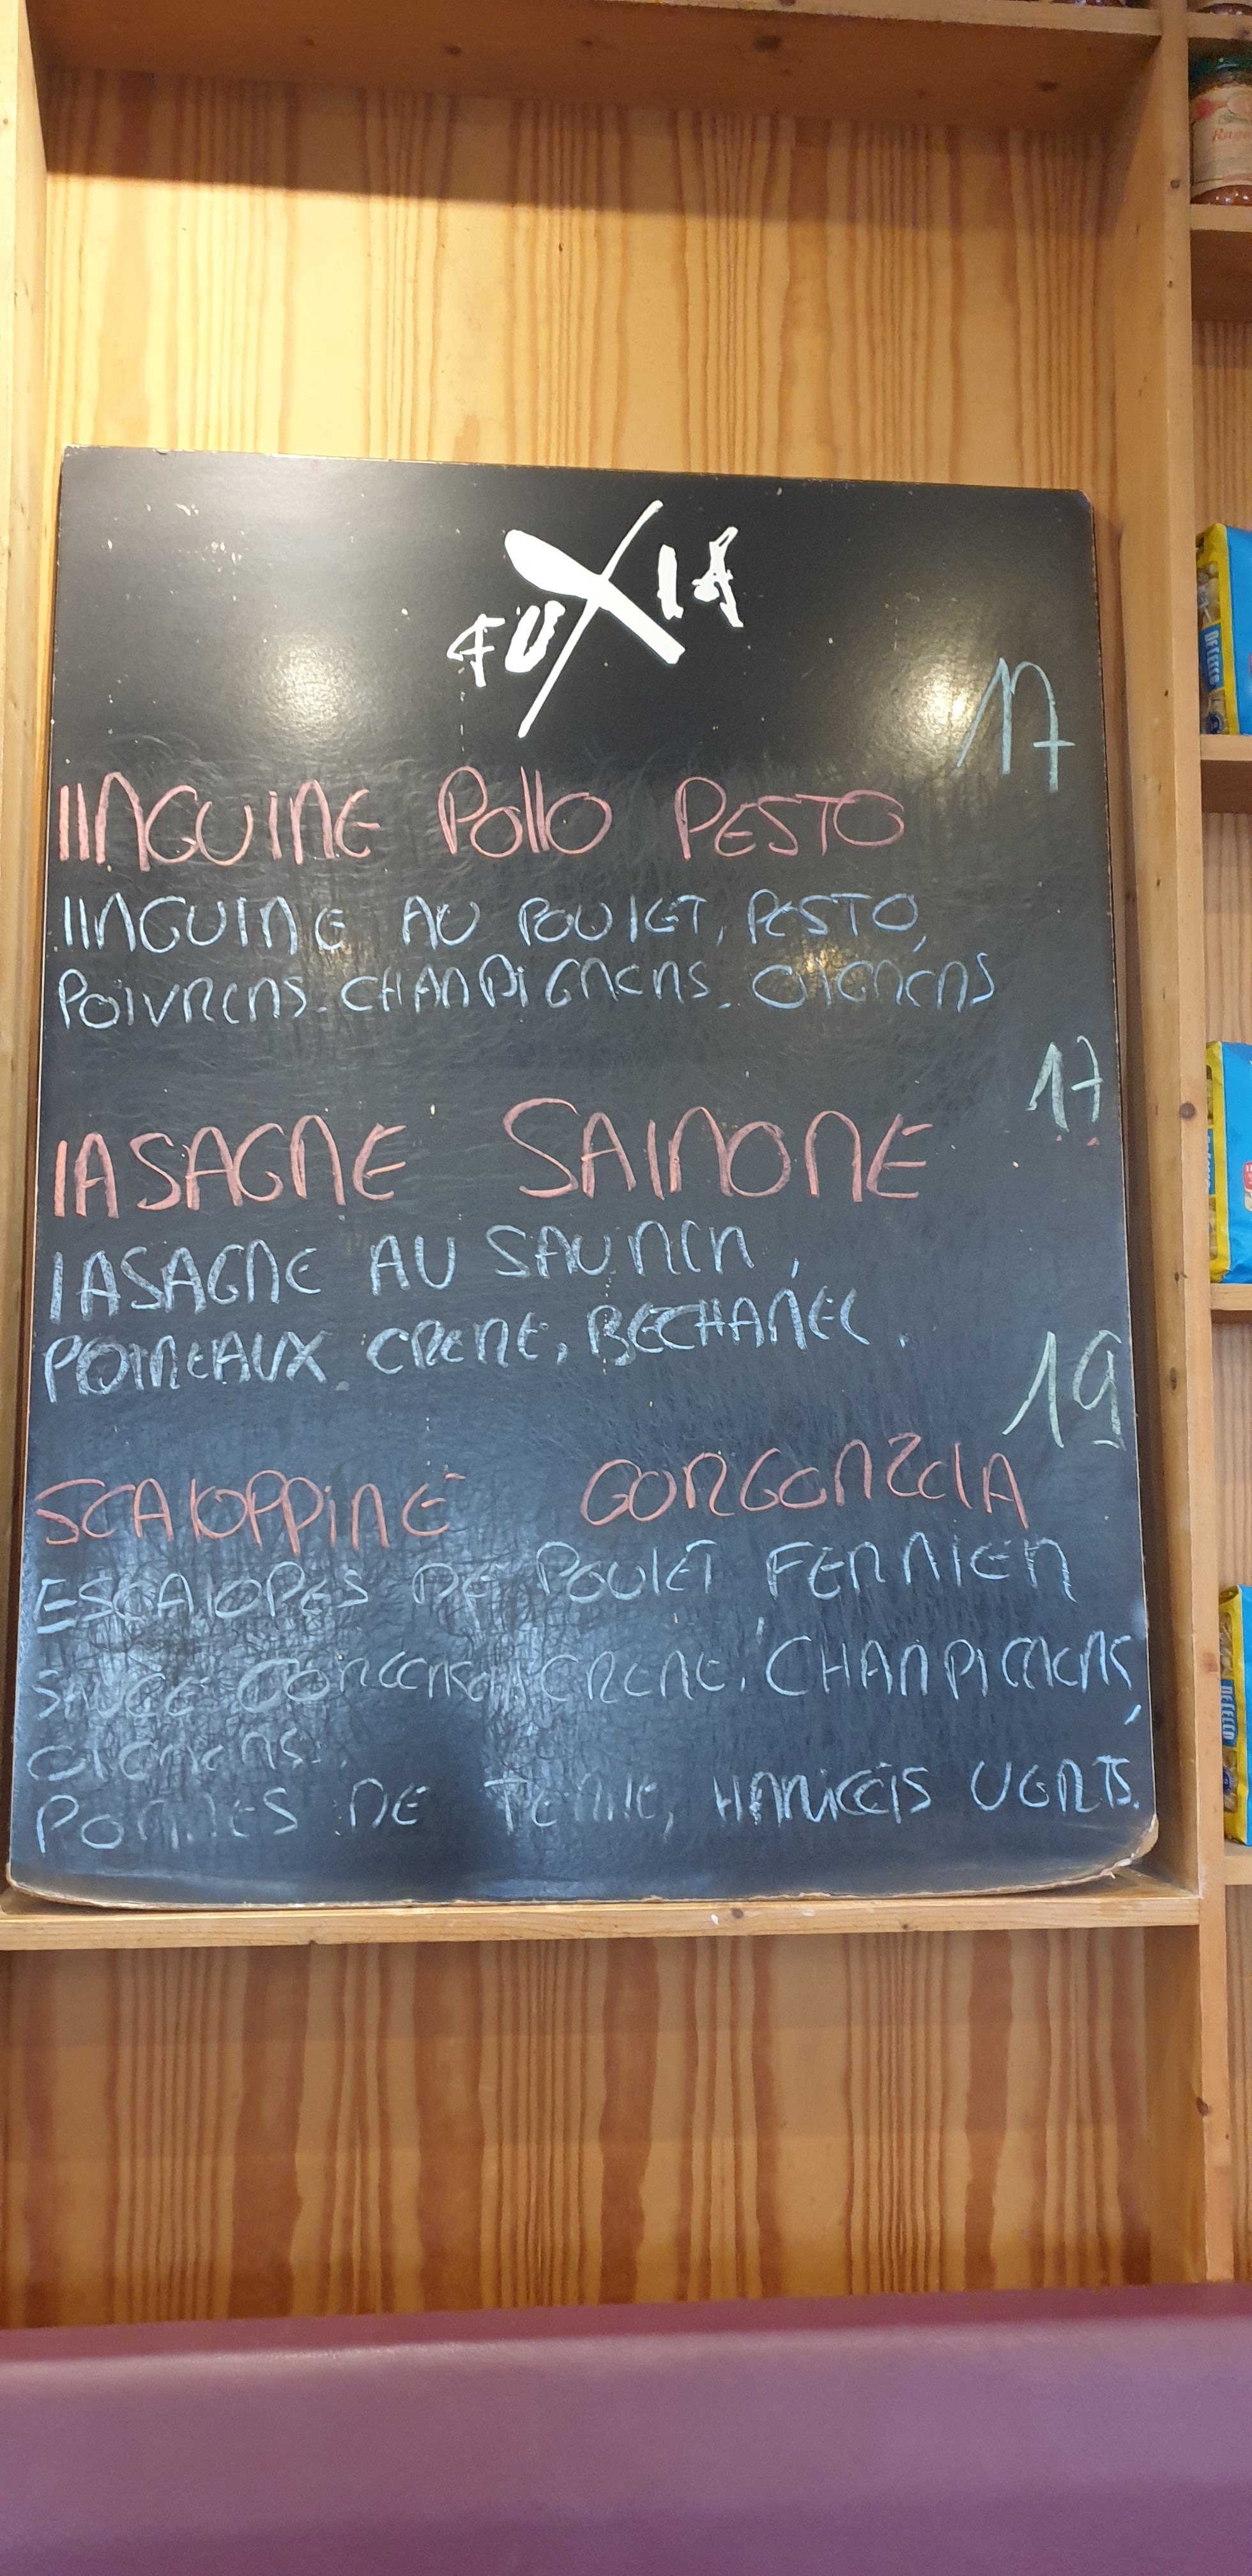 FUXIA
17
lINGUINE Pollo PESTO
lINGUINE AU POUlET, PESTO,
POIVRONS. CHAMPIGNONS. OIGNONS
17
lASAGNE SAlMONE
lASAGNE AU SAUMON,
POIREAUX. CREME, BECHAMEL.
19
SCAlOPPINE GORGONZOlA
ESCAlOPES DE POUlET FERMIER
SAUCE CREME, CHAMPIGNONS,
OIGNONS.
POMMES DE TERRE, HARICOTS VERTS.
DE CECCO
DE CECCO